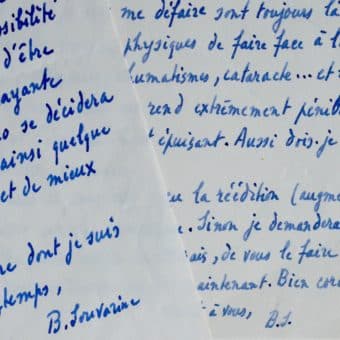 sibilité
d'être
ayante
se décidera
ainsi quelque
et de mieux
dont je suis
temps,
B. Souvarine
me défaire sont toujours la
physiques de faire face à l
humatismes, cataracte... et
rend extrêmement pénib
t épuisant. Aussi dois-je
la réédition (augm
. Sinon je demandera
ais, de vous le faire
aintenant. Bien cor
t à vous,
B.S.